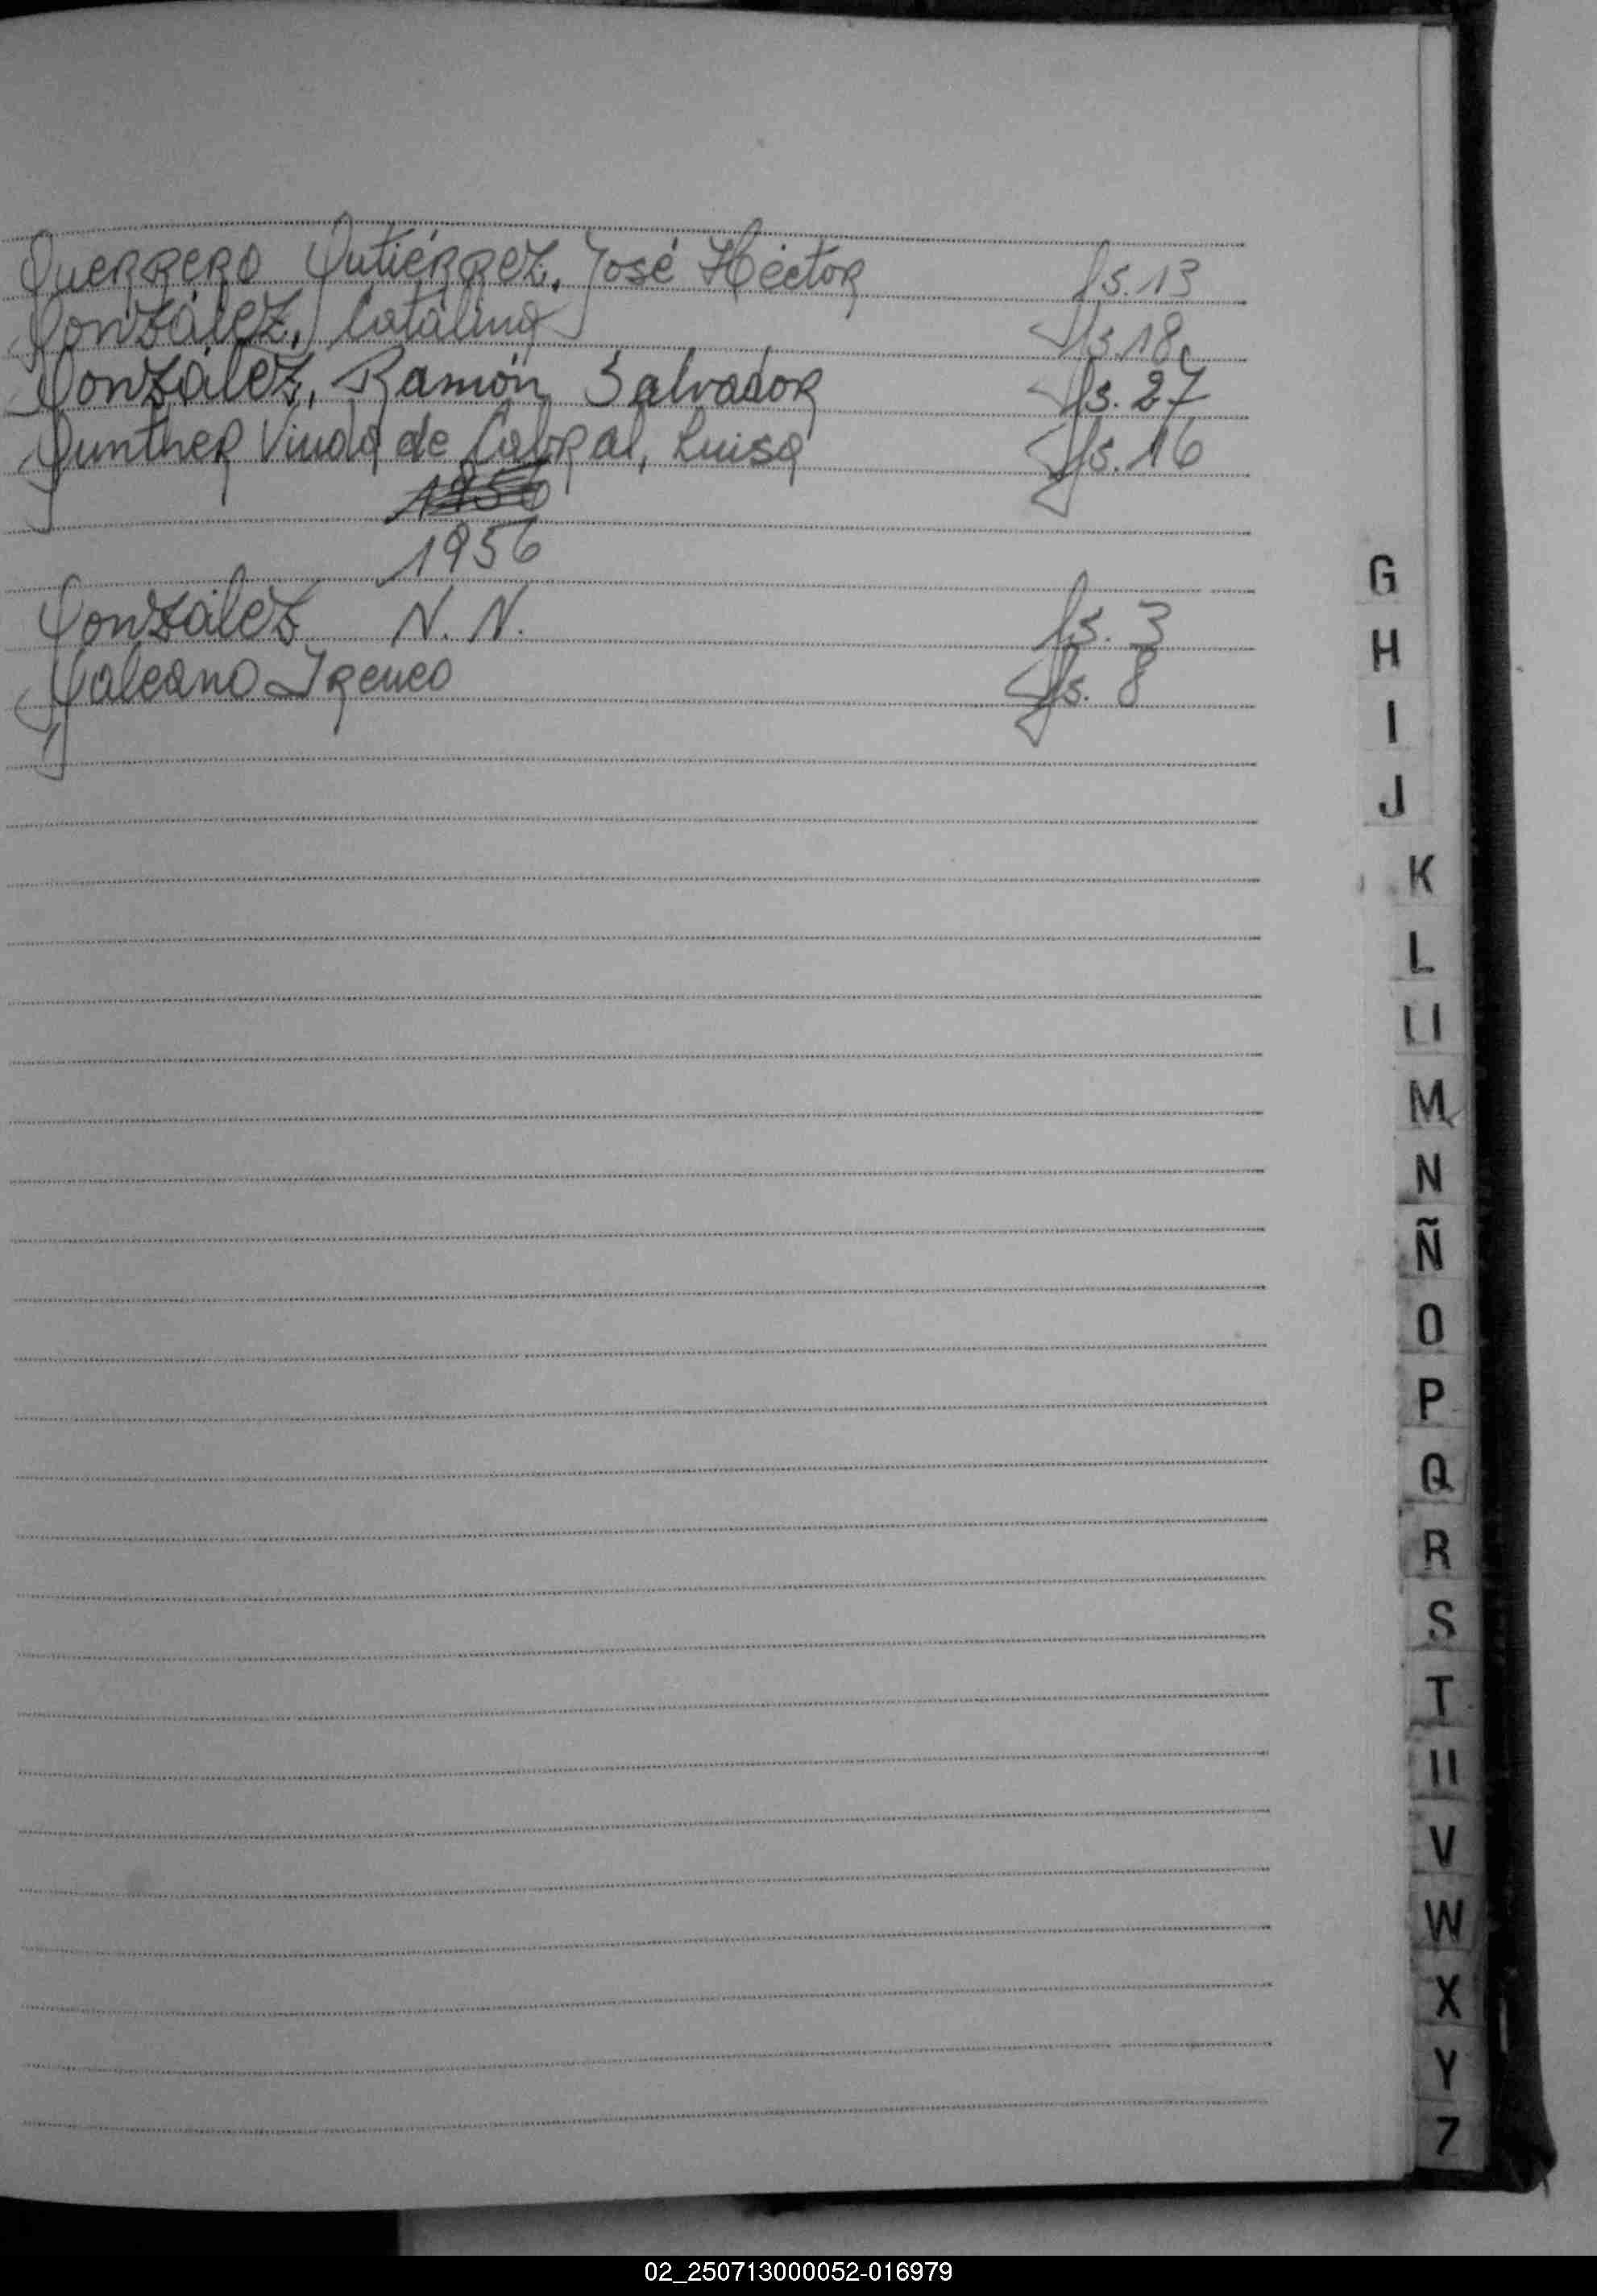 Guerrero Gutiérrez, José Héctor fs. 13
González, Catalina fs. 18
González, Ramón Salvador fs. 27
Gunther Viuda de Cabral, Luisa fs. 16
1956
1956
González N. N. fs. 3
Galeano Ireneo fs. 8
G
H
I
J
K
L
Ll
M
N
Ñ
O
P
Q
R
S
T
U
V
W
X
Y
Z
02_250713000052-016979